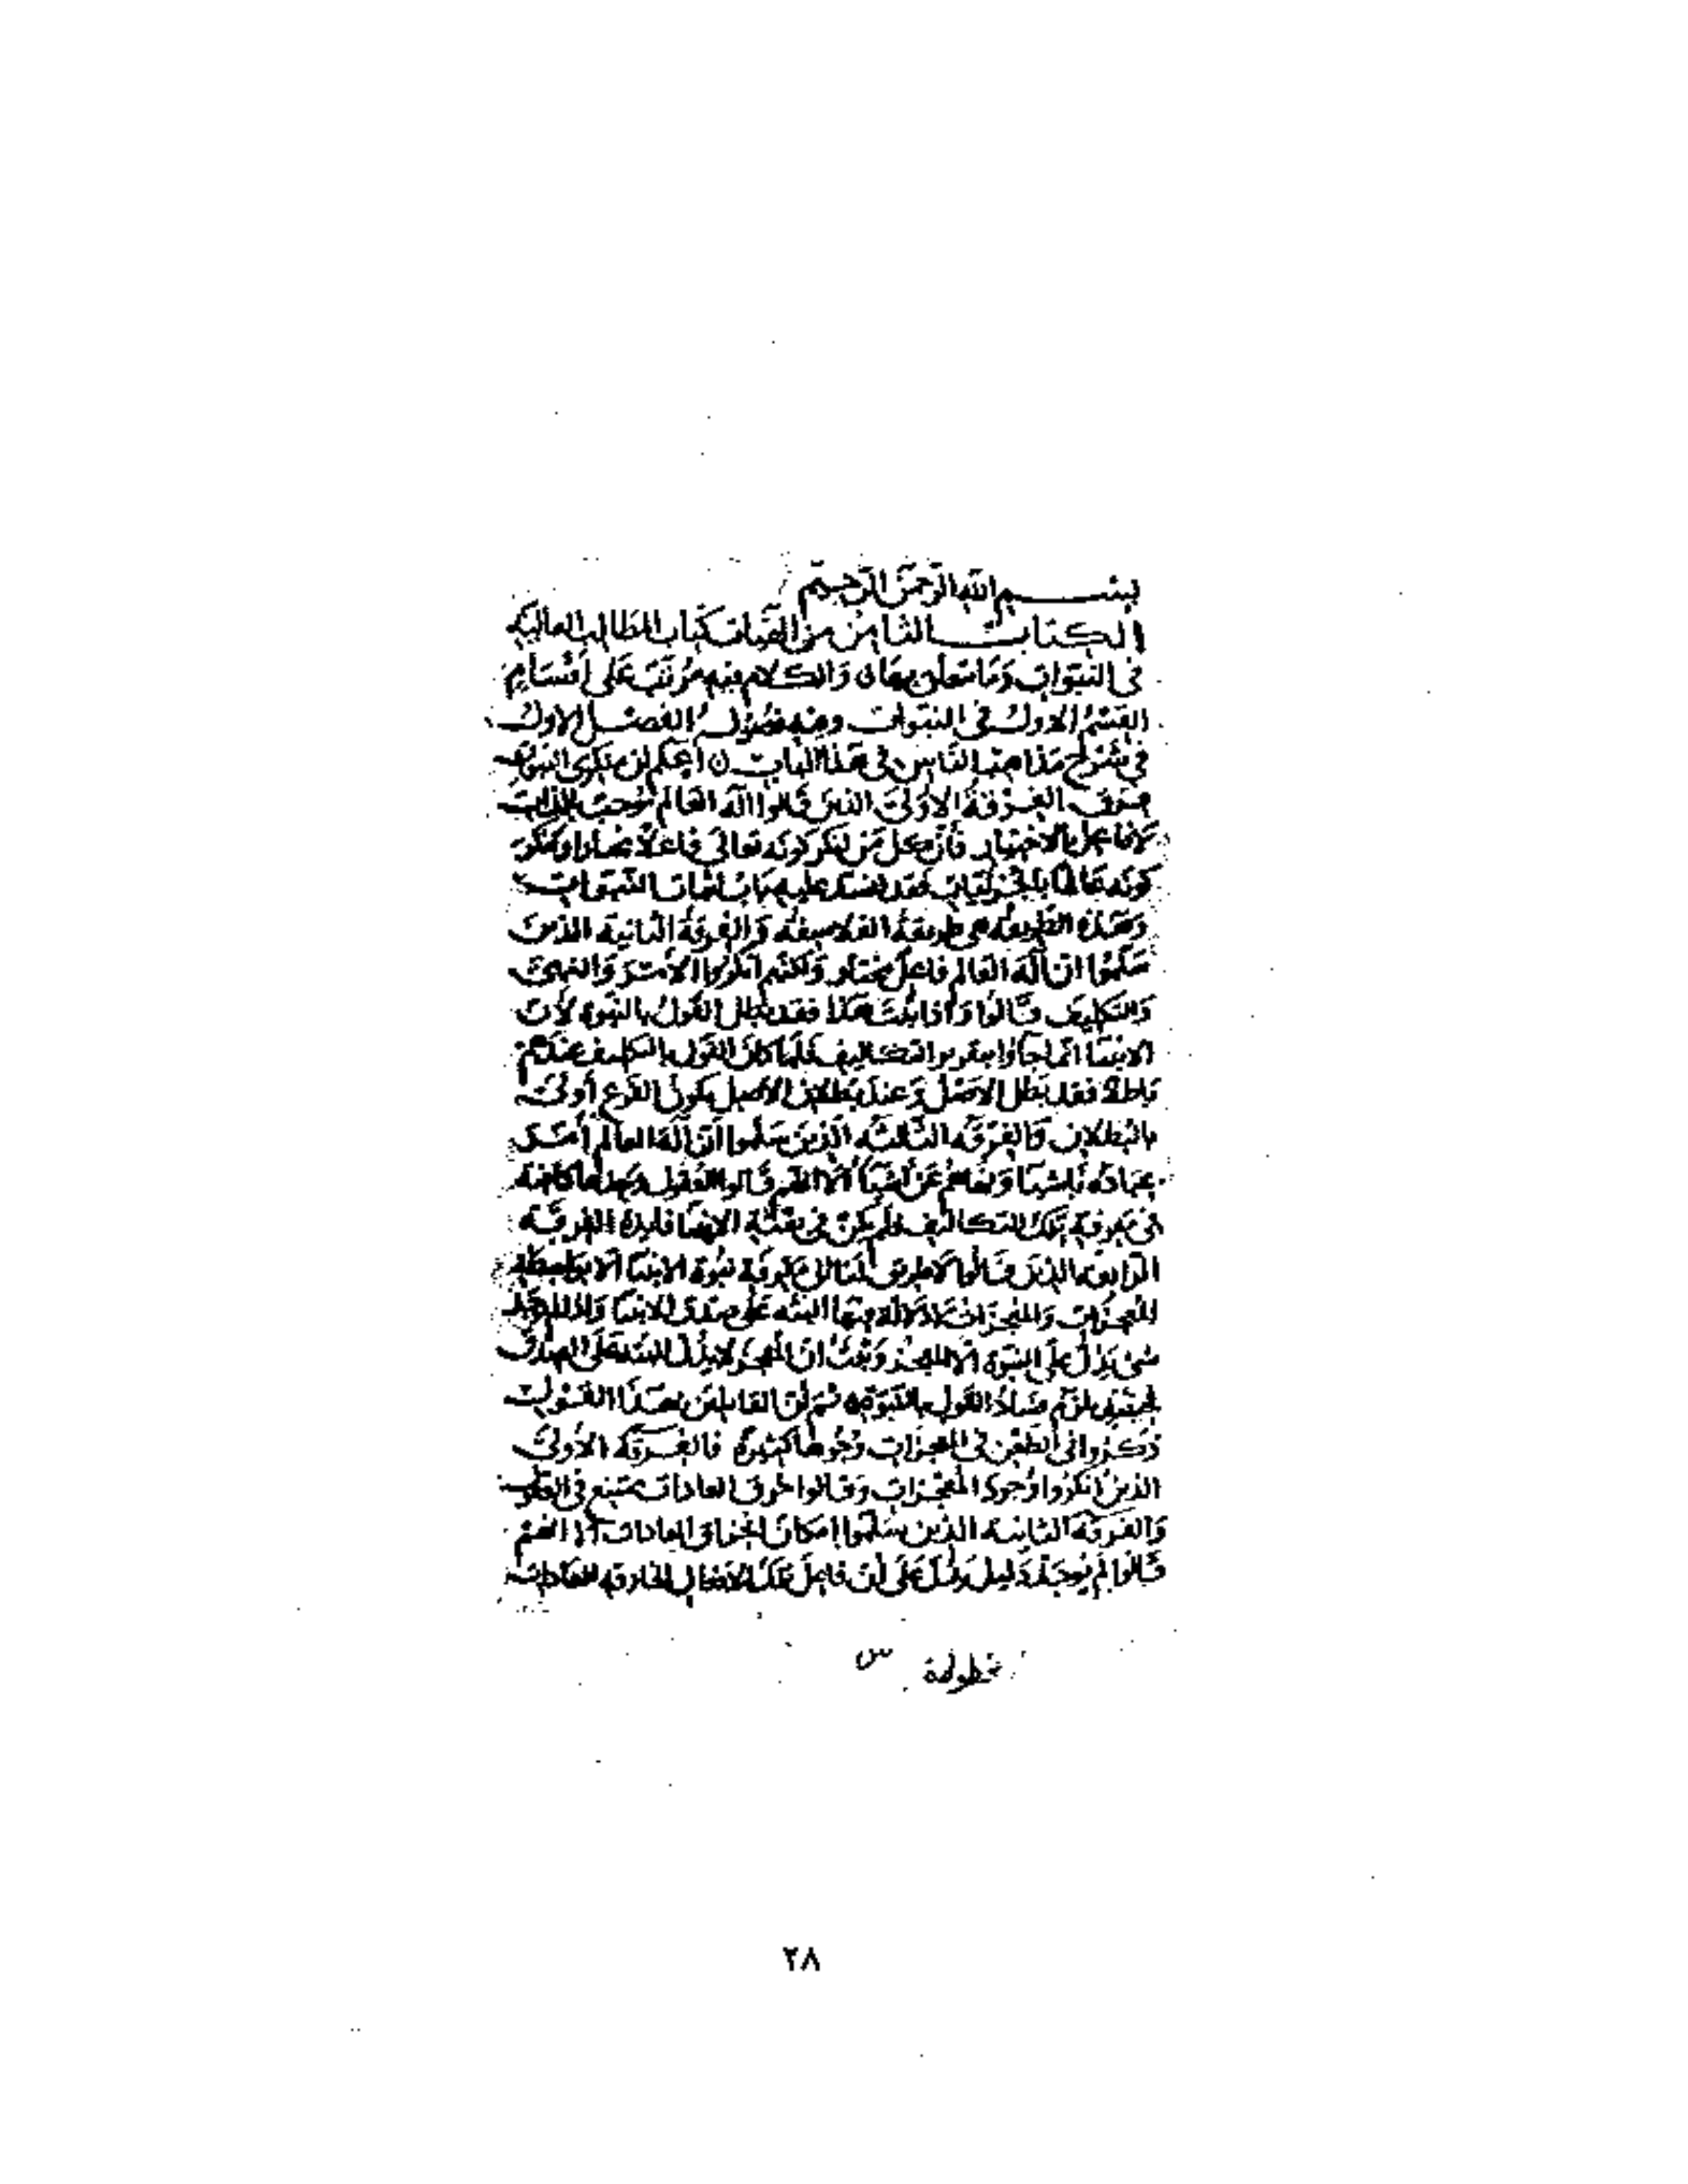 بسم الله الرحمن الرحيم
الكتاب الثامن من كتاب المطالب العاليه
في النبوات وما يتعلق بها ن والكلام فيه مرتب على اقسام
القسم الاول في النبوات وفيه فصول الفصل الاول
في شرح مذاهب الناس في هذا الباب ن اعلم ان منكري النبوة
فرق الفرقة الاولى الذين قالوا اله العالم موجب بالذات
لا فاعل بالاختيار فان كل من انكر كونه تعالى فاعلا مختارا وانكر
كونه عالما بالجزئيات فقد انسد عليه باب اثبات النبوات
وهذه الطريقة هي طريقة الفلاسفة والفرقة الثانيه الذين
سلموا ان اله العالم فاعل مختار ولكنهم انكروا الامر والنهي
والتكليف قالوا واذا ثبت هذا فقد بطل القول بالنبوة لان
الانبيا انما جاوا بتقرير التكاليف فلما كان القول بالتكليف عندهم
باطلا فقد بطل الاصل وعند بطلان الاصل يكون الفرع أولى
بالبطلان والفرقه الثالثه الذين سلموا ان اله العالم أمر
عباده باشيا ونهاهم عن أشيا الا انهم قالوا العقول وحدها كافية
في معرفة تلك التكاليف فلم يكن في بعثة الانبيا فايدة الفرقة
الرابعه الذين قالوا لا طريق لنا الى معرفة نبوة الانبيا الا بواسطة
المعجزات والمعجزات لا دلالة فيها البته على صدق الانبيا
شي يدل على النبوة الا المعجز وثبت ان المعجز لا يدل البتة على الصدق
فحينئذ يلزم فساد القول بالنبوة ثم ان القايلين بهذا القول
ذكروا في الطعن في المعجزات وجوها كثيرة فالفرقه الاولى
الذين انكروا وجود المعجزات وقالوا خرق العادات ممتنع في العقول
والفرقه الثانيه الذين سلموا امكان انخراق العادات الا انهم
قالوا لم يوجد دليل يدل على ان فاعل تلك الافعال الخارقه للعادات
مخطوطة س
٢٨